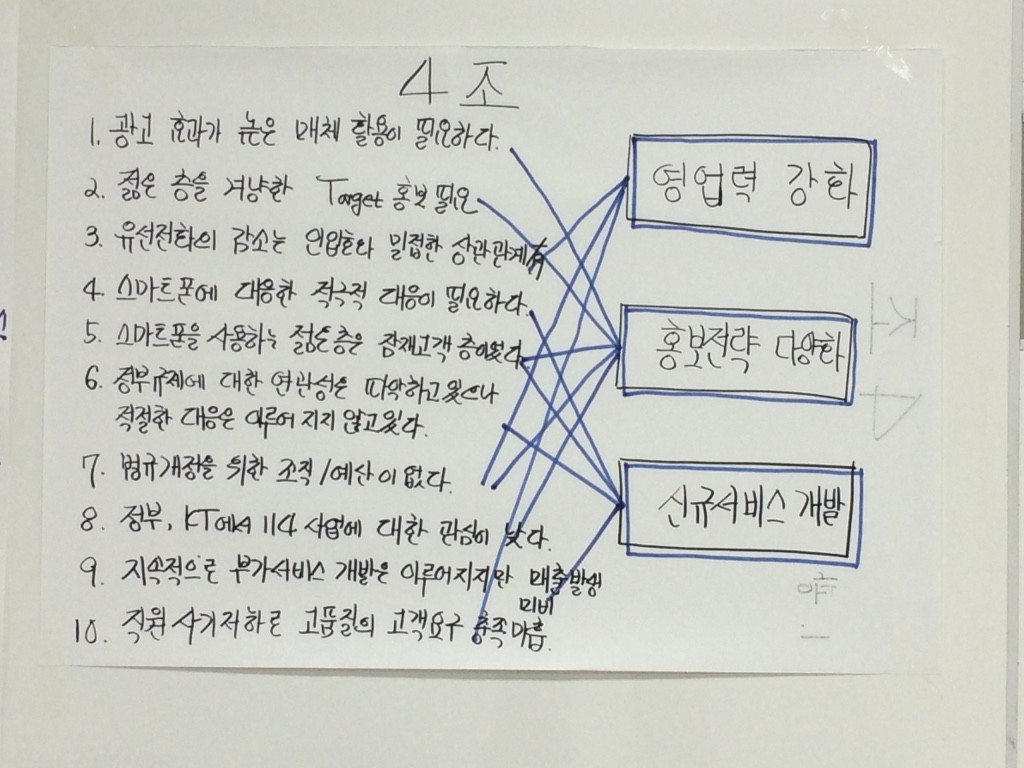 4조
1. 광고 효과가 높은 매체 활용이 필요하다.
2. 젊은 층을 겨냥한 Target 홍보 필요
3. 유선전화의 감소는 인압호와 밀접한 상관관계有
4. 스마트폰에 대응한 적극적 대응이 필요하다.
5. 스마트폰을 사용하는 젊은층은 잠재고객 층이었다
6. 정부규제에 대한 연관성은 파악하고 있으나
적절한 대응은 이루어 지지 않고 있다.
7. 법규개정을 위한 조직/예산이 없다.
8. 정부, KT에서 114 사업에 대한 관심이 낮다.
9. 지속적으로 부가서비스 개발은 이루어지지만 매출발생
미비
10. 직원 사기저하로 고품질의 고객요구 충족 미흡.
영업력 강화
홍보전략 다양화
신규서비스 개발